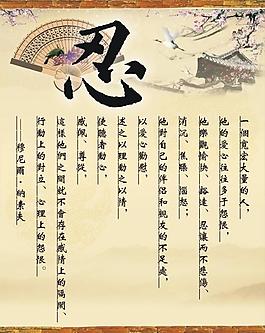 忍
一個寬宏大量的人，
他的愛心往往多于怨恨，
他樂觀愉快、豁達、忍讓而不悲傷、
消沉、焦躁、惱怒；
他對自己的伴侶和親友的不足處，
以愛心勸慰，
述之以理動之以情，
使聽者動心，
感佩、尊從，
這樣他們之間就不會存在感情上的隔閡、
行動上的對立、心理上的怨恨。
——穆尼爾·納素夫